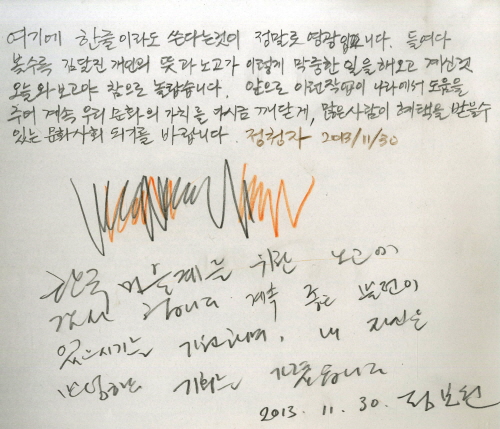 여기에 한글이라도 쓴다는것이 정말로 영광입니다. 들여다
볼수록 김달진 개인의 뜻과 노고가 이렇게 막중한 일을 해오고 계신것
오늘와보고야 참으로 놀랍습니다. 앞으로 이런작업이 나라에서 도움을
주어 계속 우리 문화의 가치를 다시금 깨닫게, 많은사람이 혜택을 받을수
있는 문화사회 되기를 바랍니다. 정청자 2013/11/30
한국 미술계를 위한 노고에
감사 합니다 계속 좋은 발전이
있으시기를 기원하며, 내 자신은
기회를 가졌습니다
2013. 11. 30. 정보원